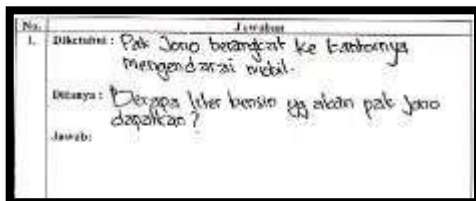 No. Jawaban
1. Diketahui : Pak Jono berangkat ke kantornya
mengendarai mobil.
Ditanya : Berapa liter bensin yg akan pak Jono
dapatkan ?
Jawab: